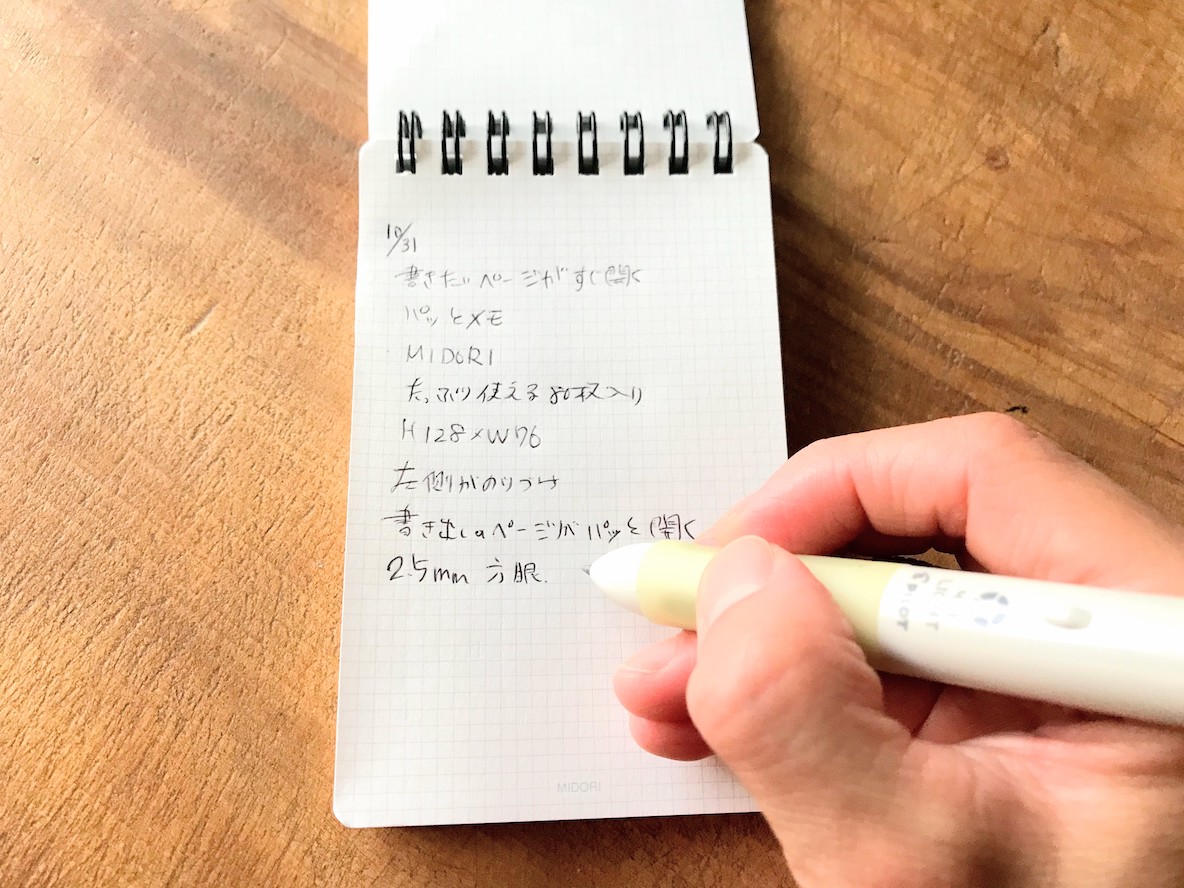 10/31
書きたいページがすぐ開く
パッとメモ
MIDORI
たっぷり使える 80枚入り
H128×W76
左側がのりづけ
書き出しのページがパッと開く
2.5mm 方眼.
MIDORI
PILOT